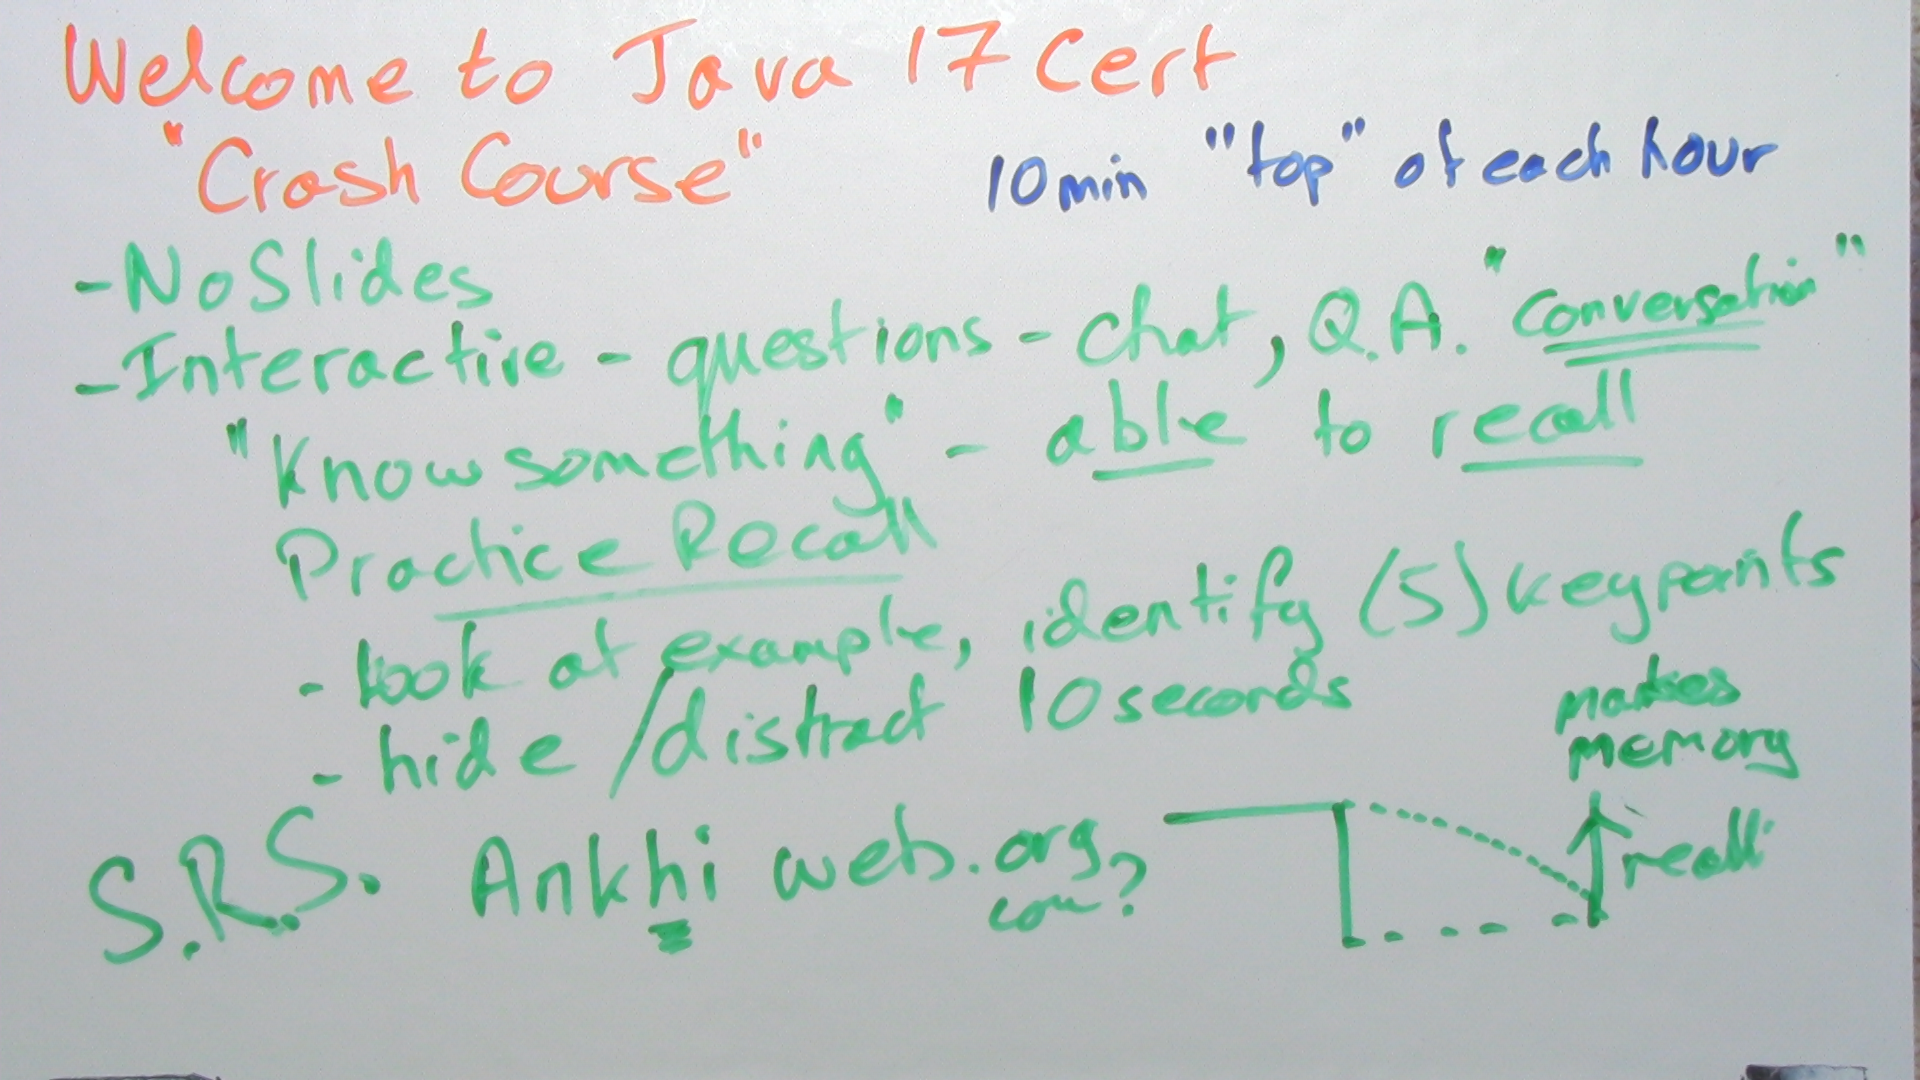 Welcome to Java 17 Cert
"Crash Course"
10min "top" of each hour
- No Slides
- Interactive - questions - chat, Q.A. "conversation"
"Know something" - able to recall
Practice Recall
- look at example, identify (5) keypoints
- hide / distract 10 seconds
makes
memory
S.R.S. Ankhi web.org
com?
recall